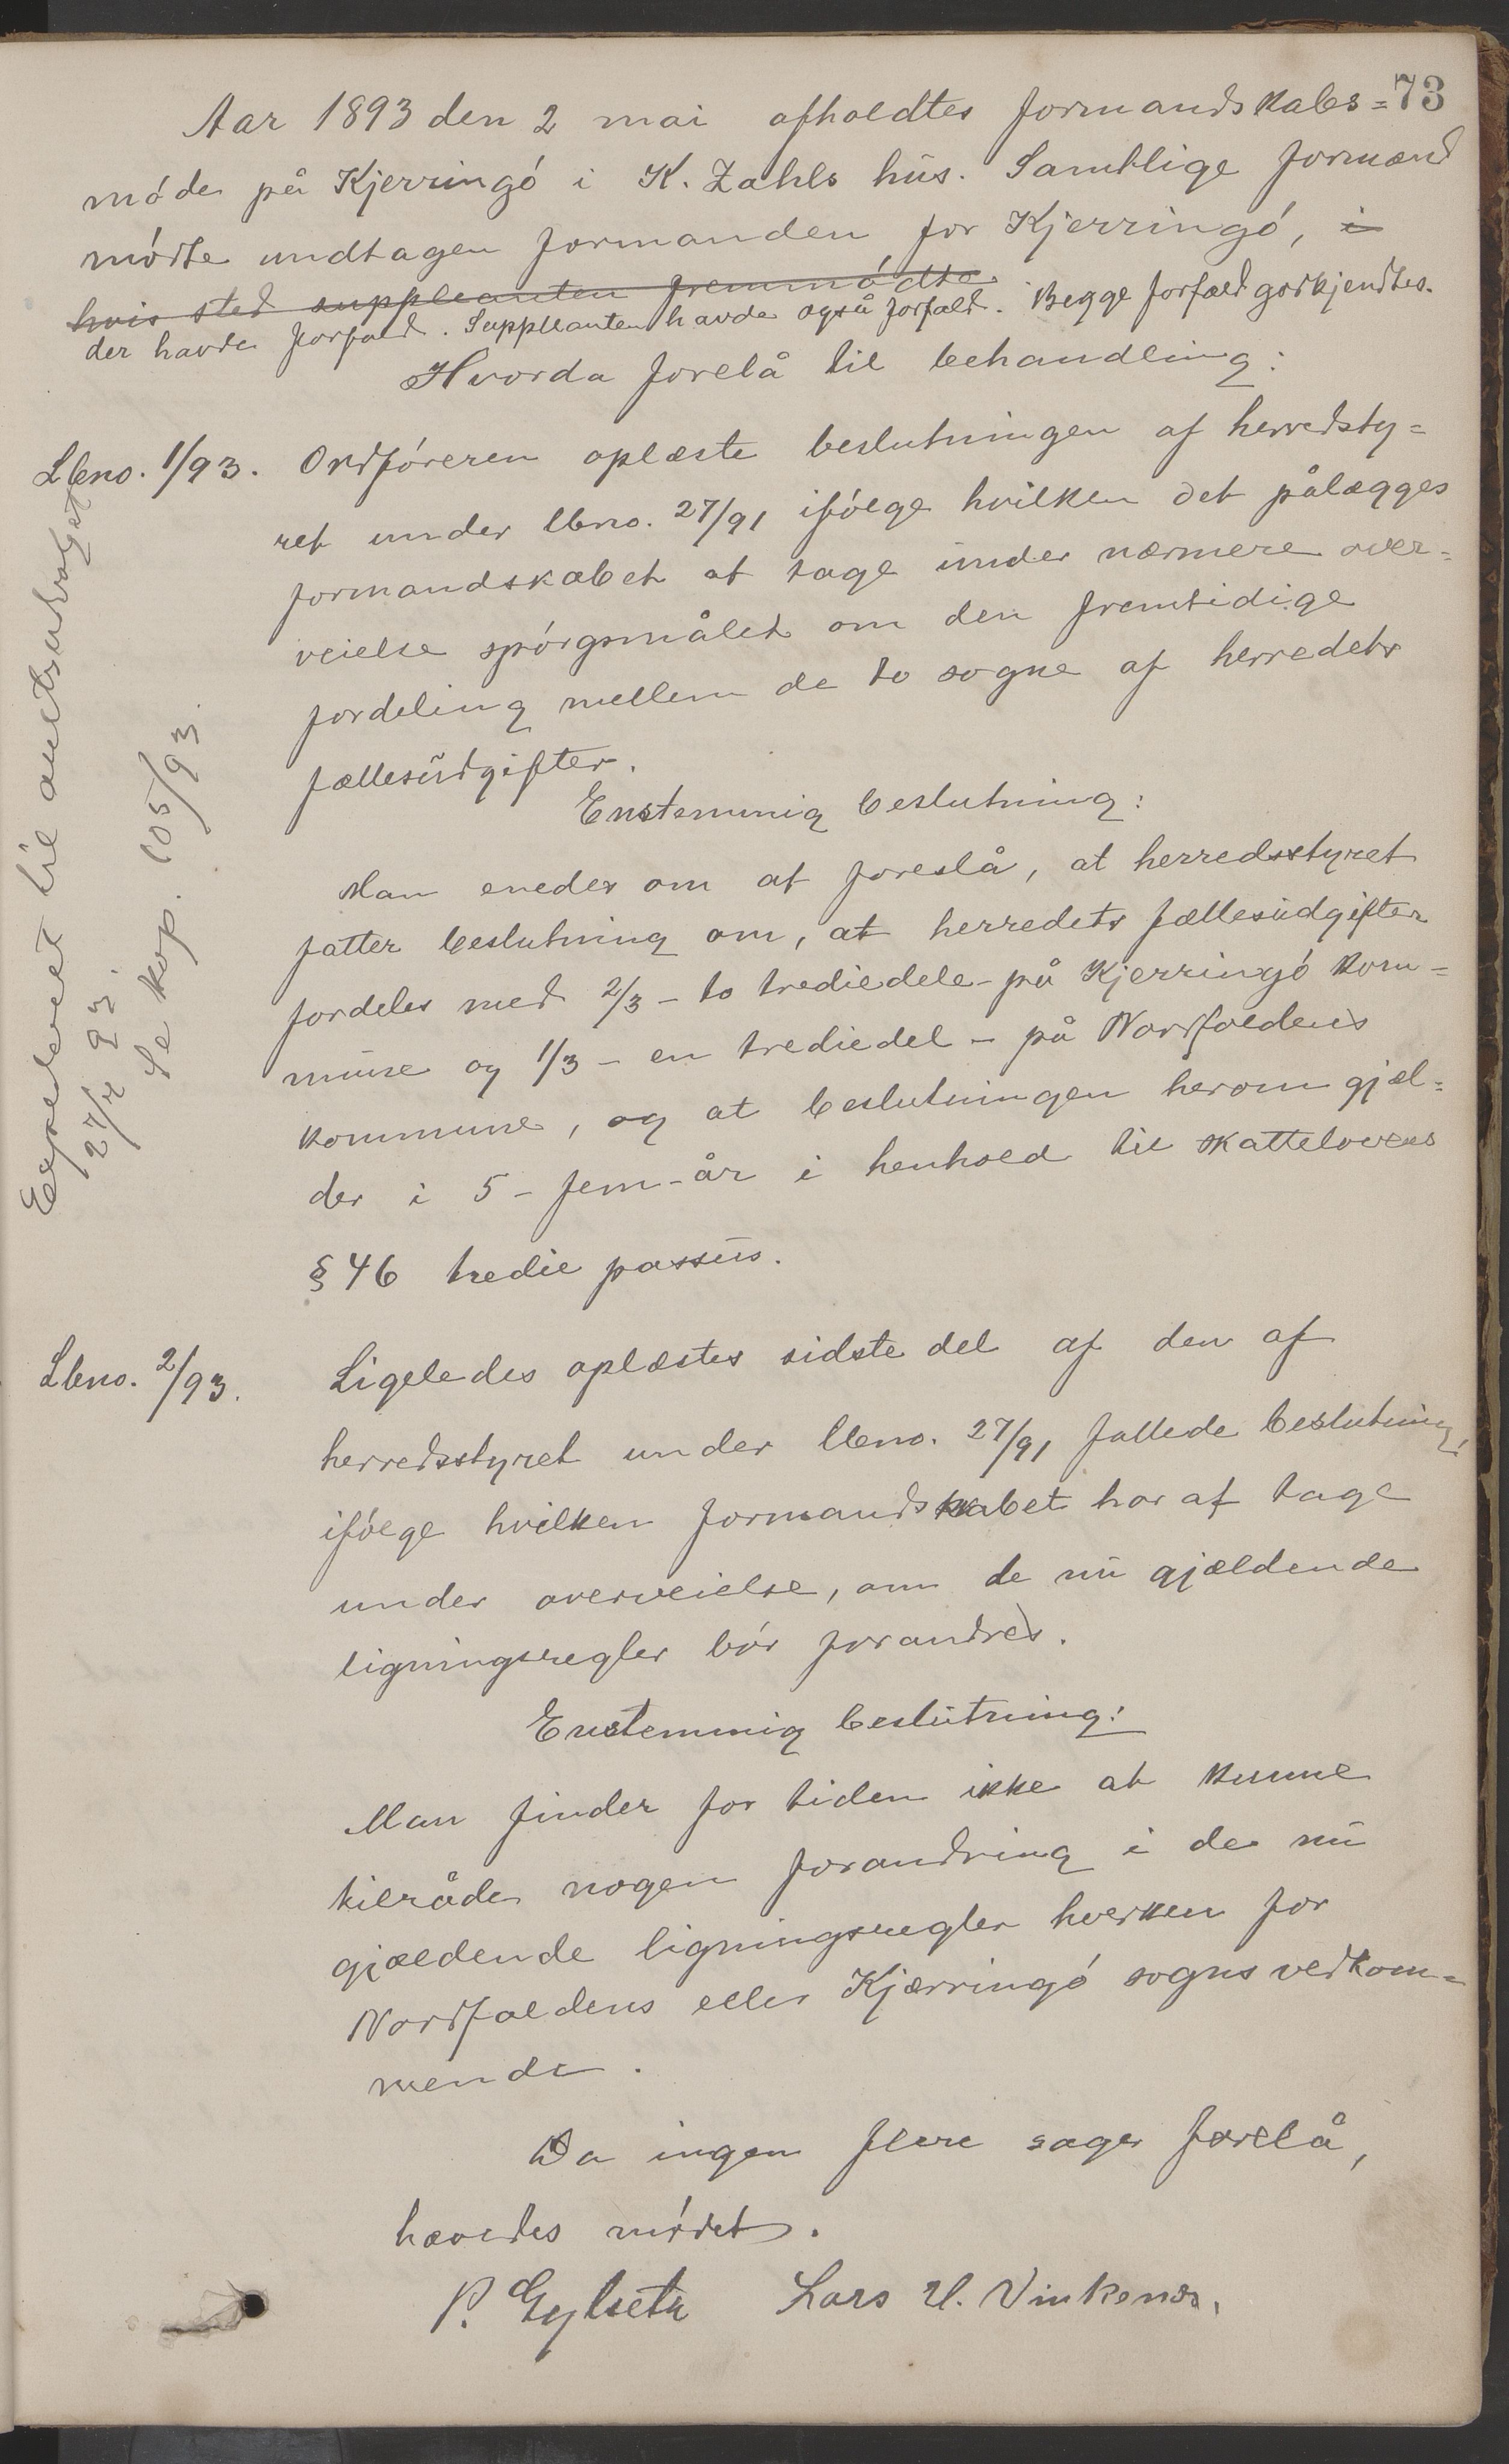 73
Aar 1893 den 2 mai afholdtes formandskabs=
møde på Kjerringø i K. Zahls hus. Samtlige formænd
mødte undtagen formanden for Kjerringø, i
hvis sted suppleanten fremmødte.
der havde forfald. Suppleanten havde også forfald. Begge forfald godkjendtes.
Hvorda forelå til behandling:
Lbno. 1/93. Ordføreren oplæste beslutningen af herredsty=
ret under lbno. 27/91 ifølge hvilken det pålægges
formandskabet at tage under nærmere over=
veielse spørgsmålet om den fremtidige
fordeling mellem de to sogne af herredets
fællesudgifter.
Enstemmig beslutning:
Man enedes om at foreslå, at herredsstyret
fatter beslutning om, at herredets fællesudgifter
fordeles med 2/3 - to trediedele - på Kjerringø kom=
mune og 1/3 - en trediedel - på Nordfoldens
kommune, og at beslutningen herom gjæl=
der i 5 - fem - år i henhold til skattelovens
§ 46 tredie passus.
Expederet til amtsudvalget
27/7 93.
Se kop. 105/93.
Lbno. 2/93. Ligeledes oplæstes sidste del af den af
herredsstyret under lbno. 27/91 fattede beslutning,
ifølge hvilken formandskabet har at tage
under overveielse, om de nu gjældende
ligningsregler bør forandres.
Enstemmig beslutning:
Man finder for tiden ikke at kunne
tilråde nogen forandring i de nu
gjældende ligningsregler hverken for
Nordfoldens eller Kjærringø sogns vedkom=
mende.
Da ingen flere sager forelå,
hævedes mødet.
P. Gylseth Lars U. Vinkenes.